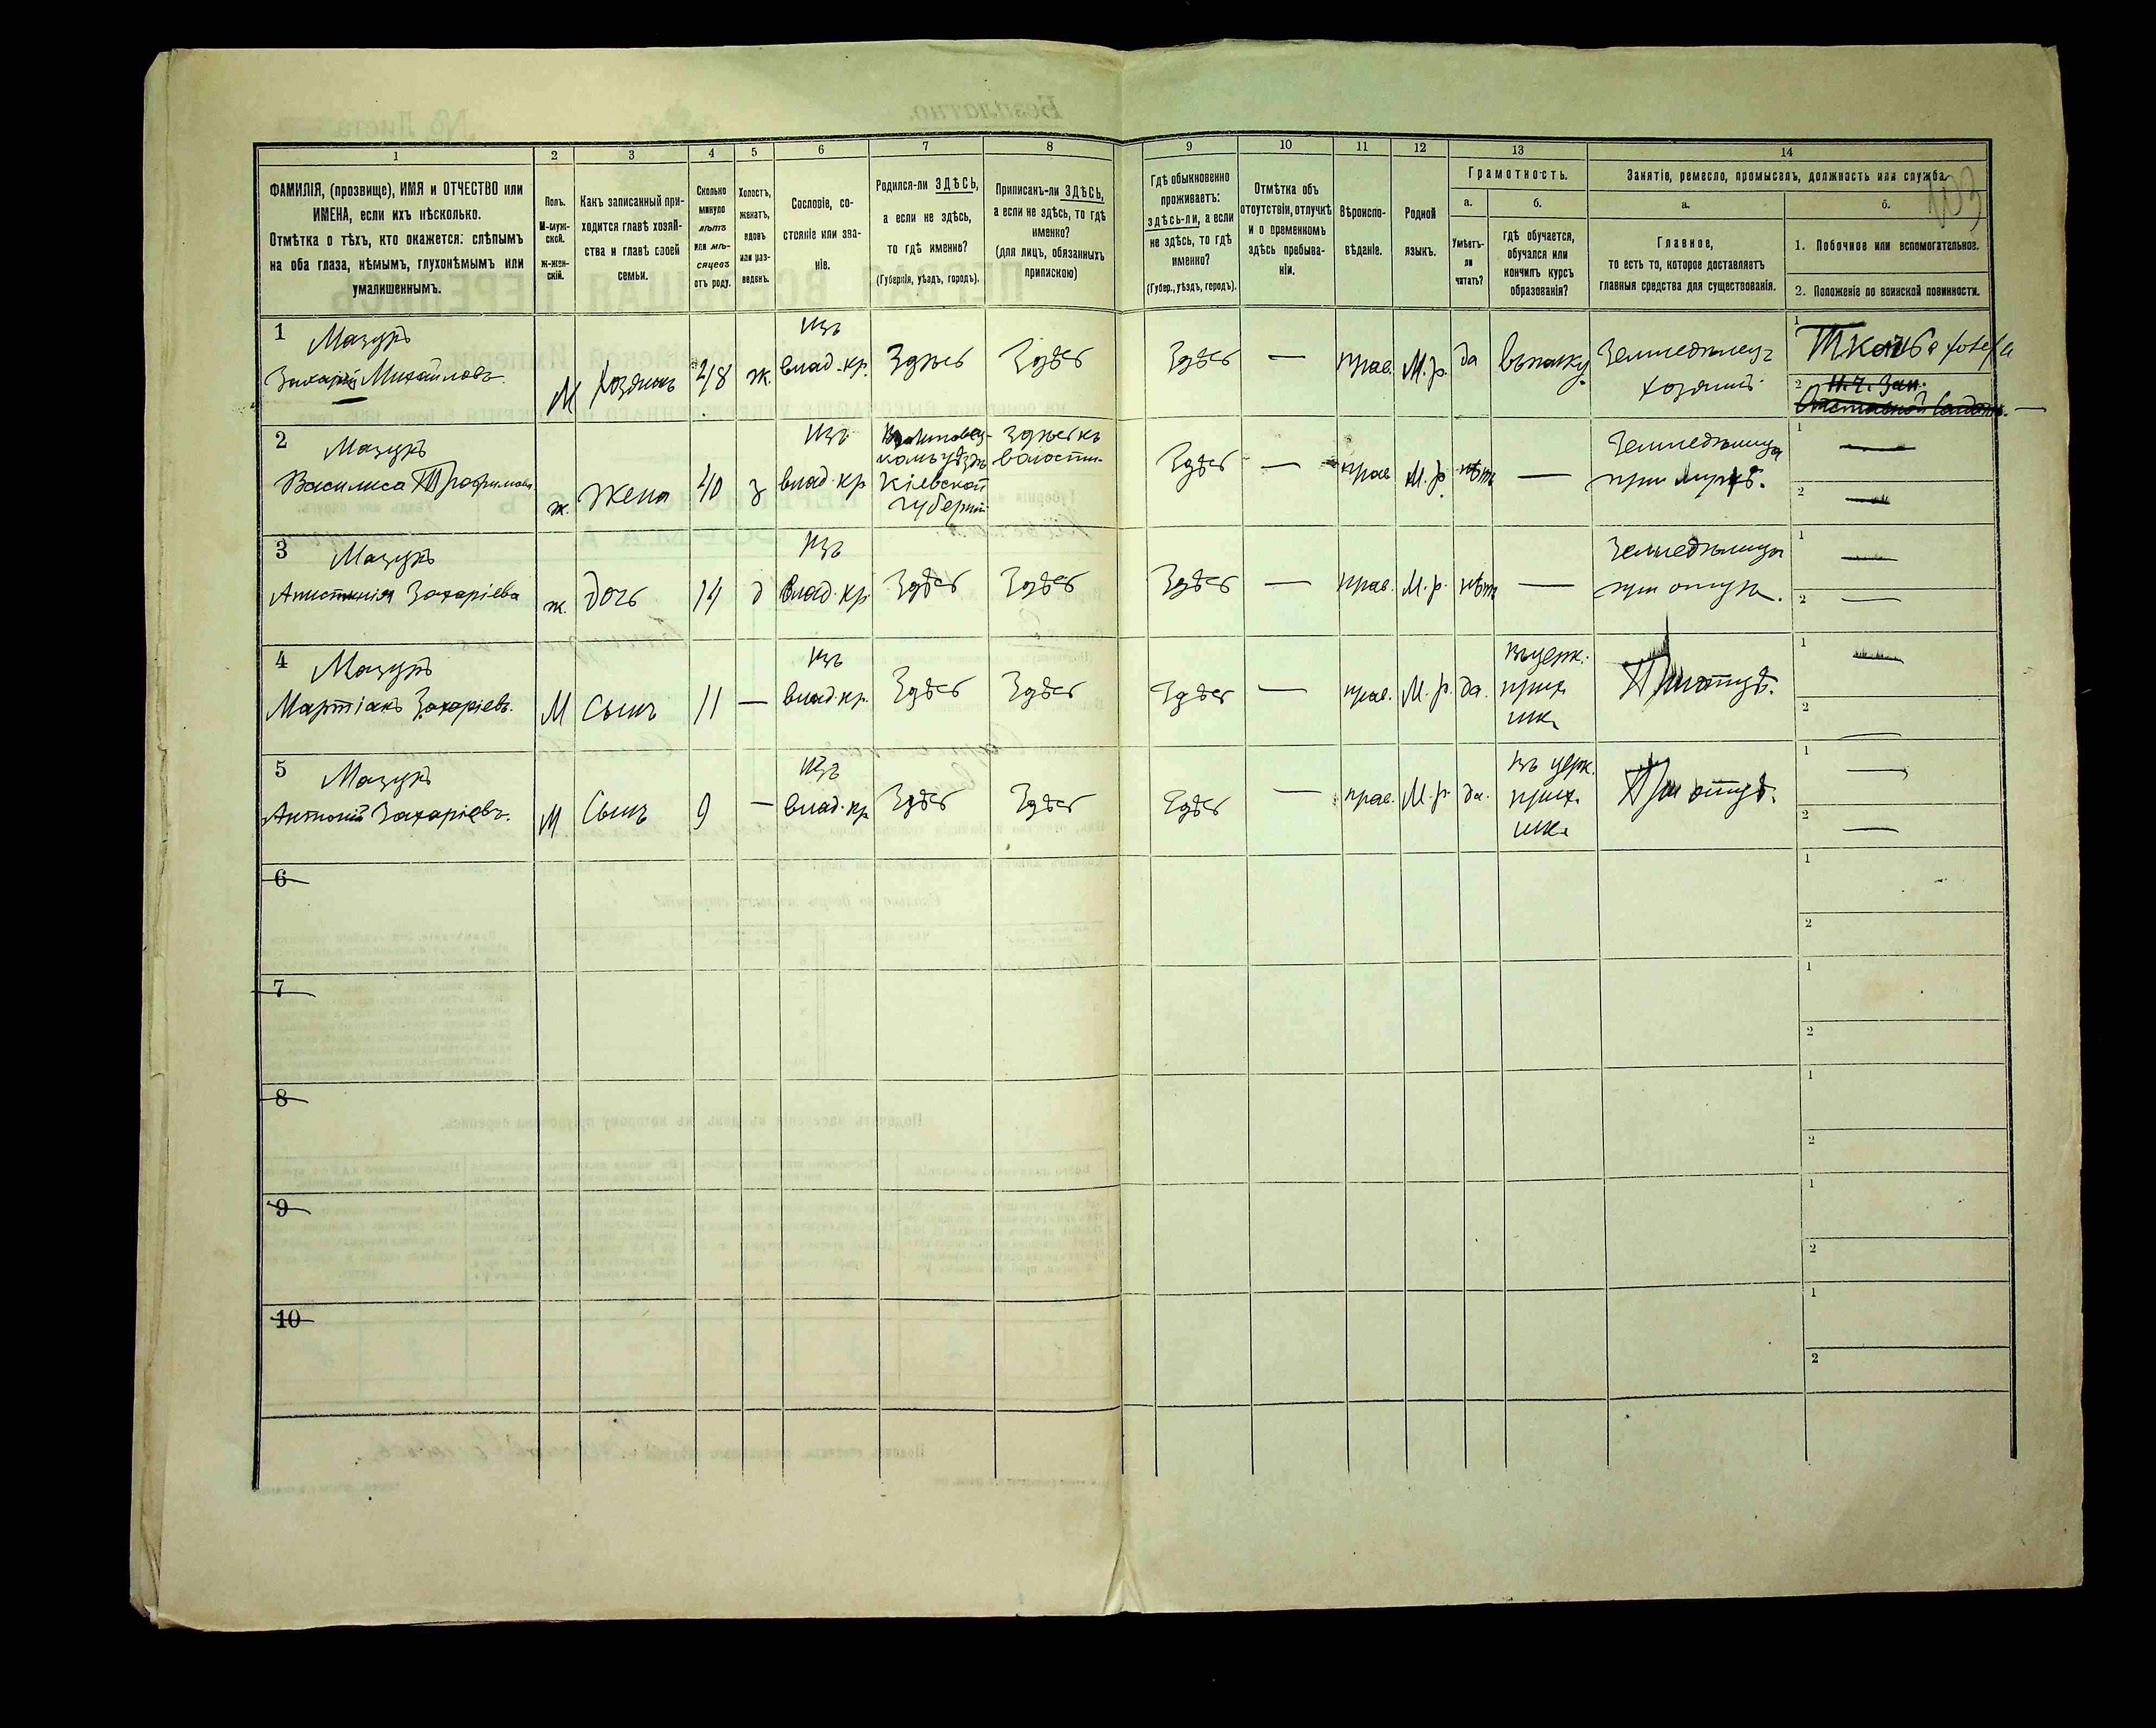 103
1 2 3 4 5 6 7 8 9 10 11 12 13 14
ФАМИЛІЯ, (прозвище), ИМЯ и ОТЧЕСТВО или
ИМЕНА, если ихъ нѣсколько.
Отмѣтка о тѣхъ, кто окажется: слѣпымъ
на оба глаза, нѣмымъ, глухонѣмымъ или
умалишеннымъ.
Полъ.
М-муж-
ской.
ж-жен-
скій.
Какъ записанный при-
ходится главѣ хозяй-
ства и главѣ своей
семьи.
Сколько
минуло
лѣтъ
или мѣ-
сяцевъ
отъ роду.
Холостъ,
женатъ,
вдовъ
или раз-
веденъ.
Сословіе, со-
стояніе или зва-
ніе.
Родился-ли ЗДѢСЬ,
а если не здѣсь,
то гдѣ именно?
(Губернія, уѣздъ, городъ).
Приписанъ-ли ЗДѢСЬ,
а если не здѣсь, то гдѣ
именно?
(для лицъ, обязанныхъ
припискою)
Гдѣ обыкновенно
проживаетъ:
здѣсь-ли, а если
не здѣсь, то гдѣ
именно?
(Губер., уѣздъ, городъ).
Отмѣтка объ
отсутствіи, отлучкѣ
и о временномъ
здѣсь пребыва-
ніи.
Вѣроиспо-
вѣданіе.
Родной
языкъ.
Грамотность.
а.
Умѣетъ-
ли
читать?
б.
гдѣ обучается,
обучался или
кончилъ курсъ
образованія?
Занятіе, ремесло, промыселъ, должность или служба.
а.
Главное,
то есть то, которое доставляетъ
главныя средства для существованія.
б.
1. Побочное или вспомогательное.
2. Положеніе по воинской повинности.
1 Мазуръ
Захарій Михайловъ.
М Хозяинъ 48 ж.
Изъ
влад. кр.
Здѣсь Здѣсь Здѣсь — прав. М. р. да
Земледѣлецъ
хозяинъ
1
2
2 Мазуръ
Василиса Трофимова
ж. Жена 40 з
Изъ
влад. кр
Кіевской
губерніи
волости
Здѣсь — прав М. р. нѣтъ —
Земледѣлица
при мужѣ.
1 —
2 —
3 Мазуръ
Захаріева
ж. дочь 14 д
Изъ
влад. кр.
Здѣсь Здѣсь Здѣсь — прав. М. р. нѣтъ —
Земледѣлица
при отцѣ.
1 —
2 —
4 Мазуръ
Захаріевъ.
М Сынъ 11 —
Изъ
влад. кр.
Здѣсь Здѣсь Здѣсь — прав. М. р. да.
въ церк.
прих.
шк.
При отцѣ.
1 —
2 —
5 Мазуръ
Антоній Захаріевъ.
М Сынъ 9 —
Изъ
влад. кр
Здѣсь Здѣсь Здѣсь — прав. М. р. да.
въ церк.
прих.
шк.
При отцѣ.
1 —
2 —
6
1
2
7
1
2
8
1
2
9
1
2
10
1
2